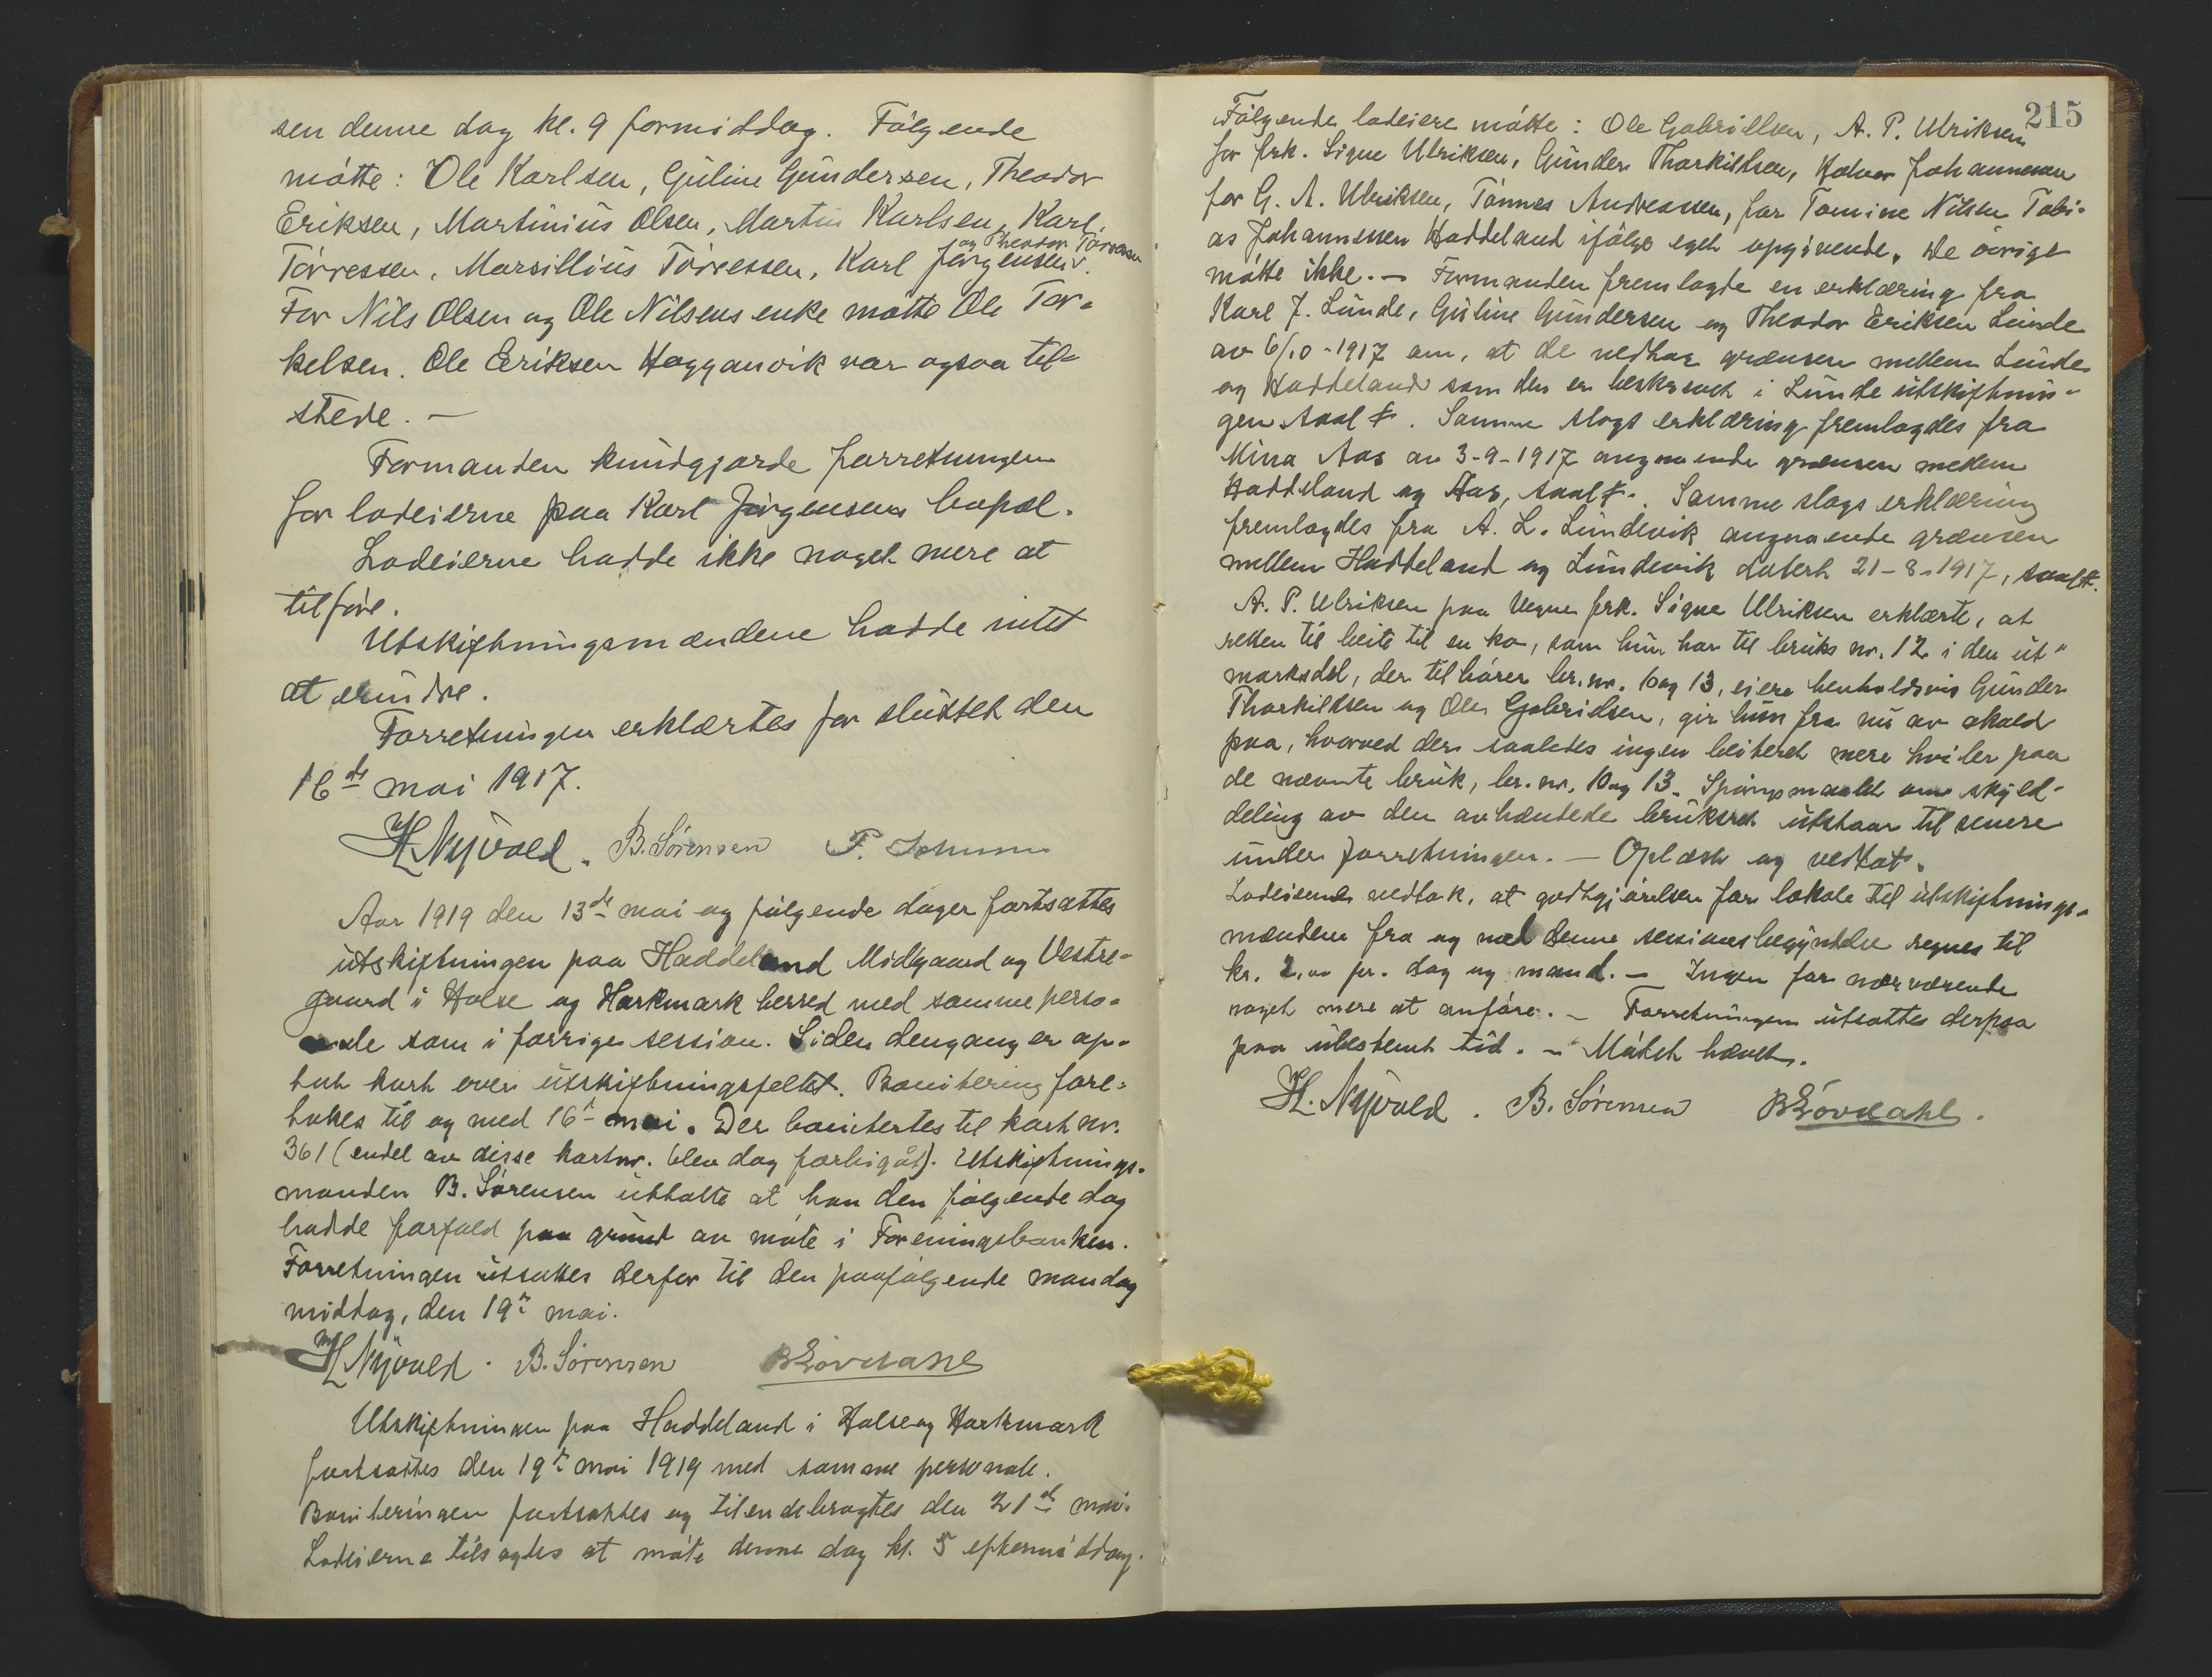 sen denne dag kl. 9 formiddag. Følgende
møtte: Ole Karlsen, Guline Gundersen, Theodor
Eriksen, Martinius Olsen, Martin Karlsen, Karl
og Theodor Tørresen
Tørressen, Marsillius Tørressen, Karl Jørgensen.
For Nils Olsen og Ole Nilsens enke møtte Ole Tor-
kelsen. Ole Eriksen Hogganvik var ogsaa til-
stede. —
Formanden kundgjorde forretningen
for lodeierne paa Karl Jørgensens bopæl.
Lodeierne hadde ikke noget mere at
tilføie.
Utskiftningsmændene hadde intet
at erindre.
Forretningen erklærtes for sluttet den
16de mai 1917.
H Nyvold. B. Sørensen
Aar 1919 den 13de mai og følgende dager fortsattes
utskiftningen paa Haddeland Midgaard og Vestre-
gaard i Halse og Harkmark herred med samme perso-
nale som i forrige session. Siden dengang er op-
tat kart over utskiftningsfeltet. Bonitering fore-
tokes til og med 16de mai. Der bonitertes til kart nr.
361 (endel av disse kartnr. blev dog forbigåt). Utskiftnings-
manden B. Sørensen uttalte at han den følgende dag
hadde forfald paa grund av møte i Foreningsbanken.
Forretningen utsattes derfor til den paafølgende mandag
middag, den 19de mai.
H Nyvold. B. Sørensen B Løvdahl
Utskiftningen paa Haddeland i Halse og Harkmark
fortsattes den 19de mai 1919 med samme personale.
Boniteringen fortsattes og tilendebragtes den 21de mai.
Lodeierne tilsagdes at møte denne dag kl. 5 eftermiddag.
215
Følgende lodeiere møtte: Ole Gabrielsen, A. P. Ulriksen
for frk. Signe Ulriksen, Gunder Thorkildsen, Halvor Johannesen
for G. A. Ulriksen, Tønnes Andreassen, for Tomine Nilsen Tobi-
as Johannessen Haddeland ifølge eget opgivende. De øvrige
møtte ikke. — Formanden fremlagde en erklæring fra
Karl J. Lunde, Guline Gundersen og Theodor Eriksen Lunde
av 6/10-1917 om, at de vedtar grænsen mellem Lunde
og Haddeland som den er beskrevet i Lunde utskiftnin-
gen. Samme slags erklæring fremlagdes fra
Mina Aas av 3-9-1917 angaaende grænsen mellem
Haddeland og Aas. Samme slags erklæring
fremlagdes fra A. L. Lundevik angaaende grænsen
mellem Haddeland og Lundevik datert 21-8-1917,
A. P. Ulriksen paa vegne frk. Signe Ulriksen erklærte, at
retten til beite til en ko, som hun har til bruks nr. 12 i den ut-
marksdel, der tilhører br. nr. 10 og 13, eiere henholdsvis Gunder
Thorkildsen og Ole Gabrielsen, gir hun fra nu av avkald
paa, hvorved der saaledes ingen beiteret mere hviler paa
de nævnte bruk, br. nr. 10 og 13. Spørgsmaalet om skyld-
deling av den avhændede bruksret utstaar til senere
under forretningen. — Oplæst og vedtat.
Lodeierne vedtok, at godtgjørelsen for lokale til utskiftnings-
mændene fra og med denne sessions begyndelse regnes til
kr. 2.00 pr. dag og mand. — Ingen før nærværende
noget mere at anføre. — Forretningen utsattes derpaa
paa ubestemt tid. — Møtet hævet.
H. Nyvold. B. Sørensen B Løvdahl.